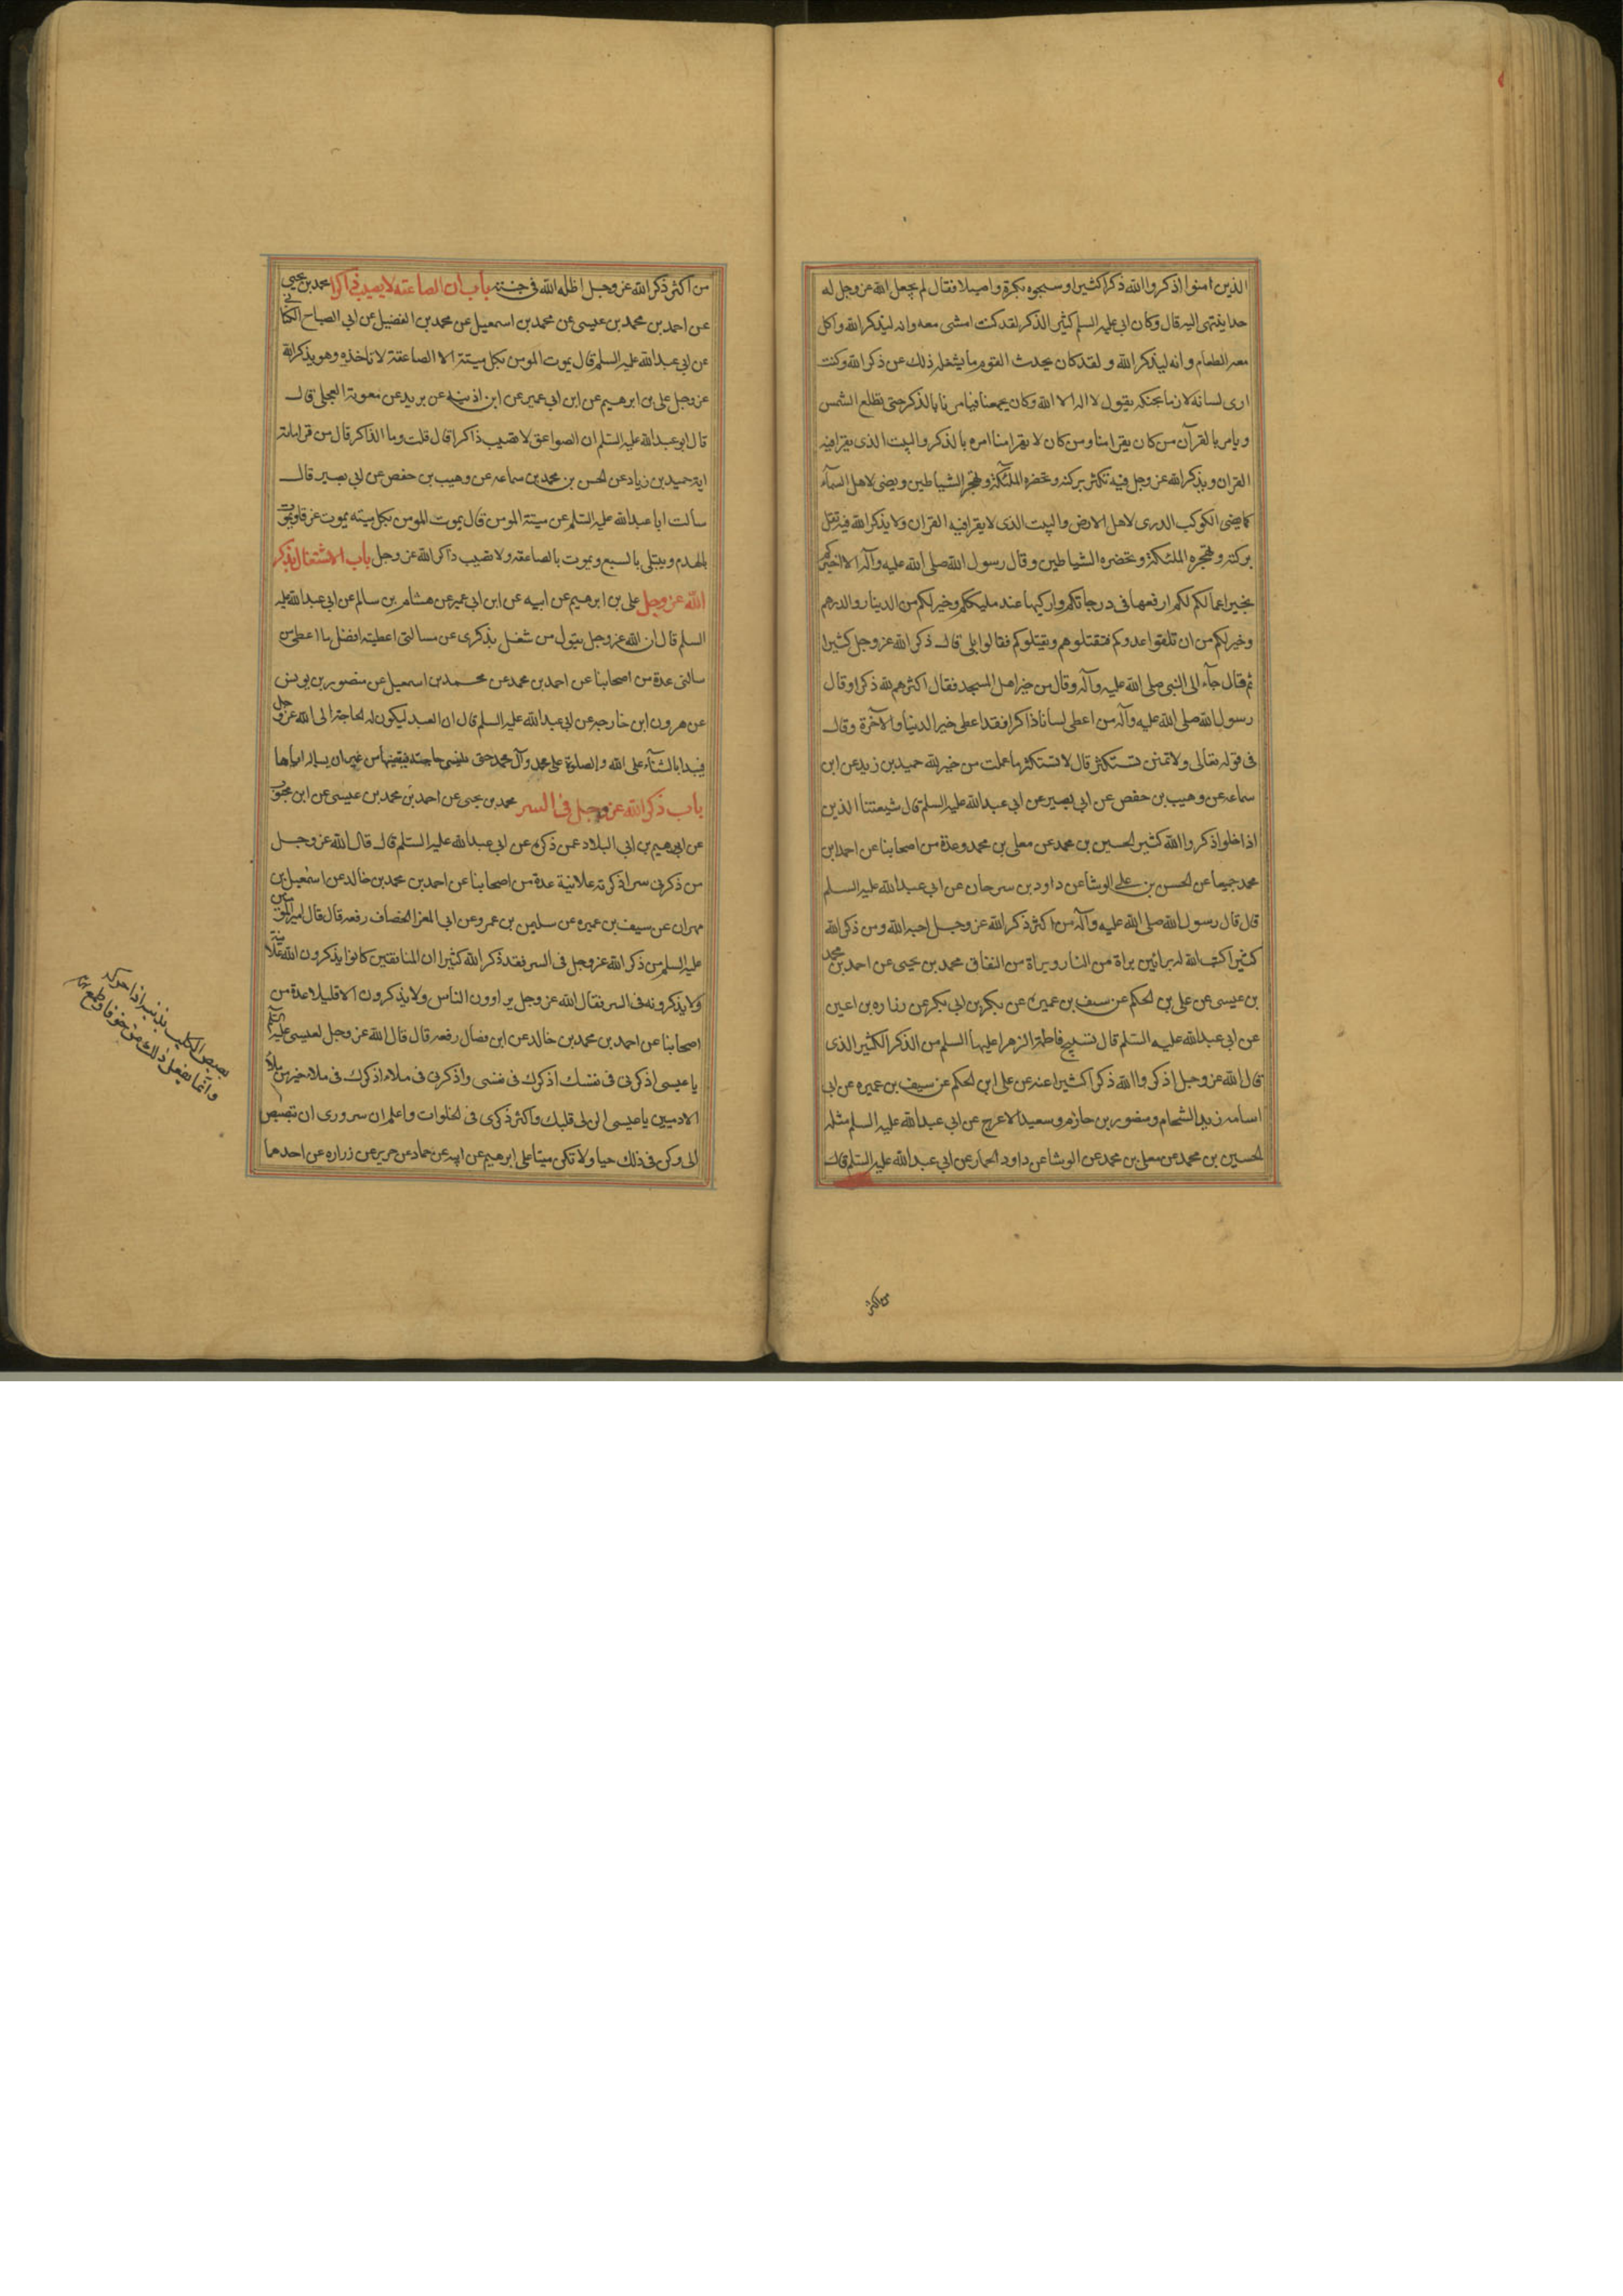 الذين امنوا اذكروا الله ذكرا كثيرا وسبحوه بكرة واصيلا فقال لم يجعل الله عز وجل له
حدا ينتهى اليه قال وكان ابى عليه السلم كثير الذكر لقد كنت امشى معه وانه ليذكر الله واكل
معه الطعام وانه ليذكر الله ولقد كان يحدث القوم ما يشغله ذلك عن ذكر الله وكنت
ارى لسانه لازما بحنكه يقول لا اله الا الله وكان يجمعنا فيامرنا بالذكر حتى تطلع الشمس
ويامر بالقرآن من كان يقرا منا ومن كان لا يقرا منا امره بالذكر والبيت الذى يقرا فيه
القران ويذكر الله عز وجل فيه تكثر بركته وتحضره الملئكة وتهجر الشياطين ويضى لاهل السمآء
كما يضى الكوكب الدرى لاهل الارض والبيت الذى لا يقرا فيه القران ولا يذكر الله فيه تقل
بركته وتهجره الملئكة وتحضره الشياطين وقال رسول الله صلى الله عليه وآله الا اخبركم
بخير اعمالكم لكم ارفعها فى درجاتكم وازكيها عند مليككم وخير لكم من الدينار والدرهم
وخير لكم من ان تلقوا عدوكم فتقتلوهم ويقتلوكم فقالوا بلى قال ذكر الله عز وجل كثيرا
ثم قال جآء الى النبى صلى الله عليه وآله وقال من خير اهل المسجد فقال اكثرهم لله ذكرا وقال
رسول الله صلى الله عليه وآله من اعطى لسانا ذاكرا فقد اعطى خير الدينا والآخرة وقال
فى قوله تعالى ولا تمنن تستكثر قال لا تستكثر ما عملت من خير لله حميد بن زيد عن ابن
سماعه عن وهيب بن حفص عن ابى بصير عن ابى عبد الله عليه السلم قال شيعتنا الذين
اذا خلوا ذكروا الله كثير الحسين بن محمد عن معلى بن محمد وعدة من اصحابنا عن احمد ابن
محمد جميعا عن الحسن بن على الوشا عن داود بن سرحان عن ابى عبد الله عليه السلم
قال قال رسول الله صلى الله عليه وآله من اكثر ذكر الله عز وجل احبه الله ومن ذكر الله
كثيرا كتب الله له براتين براة من النار وبراة من النفاق محمد بن يحيى عن احمد بن محمد
بن عيسى عن على بن الحكم عن سيف بن عميرة عن بكر بن ابى بكر عن زراره بن اعين
عن ابى عبد الله عليه السلم قال تسبيح فاطمة الزهرا عليها السلم من الذكر الكثير الذى
قال الله عز وجل اذكروا الله ذكرا كثيرا عنه عن على ابن الحكم عن سيف بن عميره عن ابى
اسامه زيد الشحام ومنصور بن حازم وسعيد الاعرج عن ابى عبد الله عليه السلم مثله
الحسين بن محمد عن معلى بن محمد عن الوشا عن داود الحمار عن ابى عبد الله عليه السلم قال
من اكثر
من اكثر ذكر الله عز وجل اظله الله فى جنته باب ان الصاعقه لا يصيب ذاكرا محمد بن يحيى
عن احمد بن محمد بن عيسى عن محمد بن اسمعيل عن محمد بن الفضيل عن ابى الصباح الكنانى
عن ابى عبد الله عليه السلم قال يموت المومن بكل ميتة الا الصاعقة لا تاخذه وهو يذكر الله
عز وجل على بن ابرهيم عن ابن ابى عمير عن ابن اذينه عن بريد عن معوية العجلى قال
قال ابو عبد الله عليه السلم ان الصواعق لا تصيب ذاكرا قال قلت وما الذاكر قال من قرا مائة
اية حميد بن زياد عن الحسن بن محمد بن سماعه عن وهيب بن حفص عن ابى بصير قال
سألت ابا عبد الله عليه السلم عن ميتة المومن قال يموت المومن بكل ميته يموت غرقا ويموت
بالهدم ويبتلى بالسبع ويموت بالصاعقه ولا تصيب ذاكر الله عز وجل باب الاشتغال بذكر
الله عز وجل على بن ابرهيم عن ابيه عن ابن ابى عمير عن هشام بن سالم عن ابى عبد الله عليه
السلم قال ان الله عز وجل يقول من شغل بذكرى عن مسالتى اعطيته افضل ما اعطى من
سالنى عدة من اصحابنا عن احمد بن محمد عن محمد بن اسمعيل عن منصور بن يونس
عن هرون ابن خارجه عن ابى عبد الله عليه السلم قال ان العبد ليكون له الحاجة الى الله عز وجل
فيبدا بالثنآء على الله والصلوة على محمد وآل محمد حتى ينسى حاجته فيقضيها من غير ان يساله اياها
باب ذكر الله عز وجل فى السر محمد بن يحيى عن احمد بن محمد بن عيسى عن ابن محبوب
عن ابرهيم بن ابى البلاد عمن ذكره عن ابى عبد الله عليه السلم قال قال الله عز وجل
من ذكرنى سرا ذكرته علانية عدة من اصحابنا عن احمد بن محمد بن خالد عن اسمعيل بن
مهران عن سيف بن عميره عن سليمن بن عمرو عن ابى المعزا الخصاف رفعه قال قال امير المومنين
عليه السلم من ذكر الله عز وجل فى السر فقد ذكر الله كثيرا ان المنافقين كانوا يذكرون الله علانية
ولا يذكرونه فى السر فقال الله عز وجل يراوون الناس ولا يذكرون الا قليلا عدة من
اصحابنا عن احمد بن محمد بن خالد عن ابن فضال رفعه قال قال الله عز وجل لعيسى عليه السلم
يا عيسى اذكرنى فى نفسك اذكرك فى نفسى واذكرنى فى ملاء اذكرك فى ملاء خير من ملاء
الادميين يا عيسى الن لى قلبك واكثر ذكرى فى الخلوات واعلم ان سرورى ان تبصبص
الى وكن فى ذلك حيا ولا تكن ميتا على ابرهيم عن ابيه عن حماد عن حريز عن زراره عن احدهما
بصبص الكلب بذنبه اذا حركه
وانما يفعل ذلك من خوف او طمع